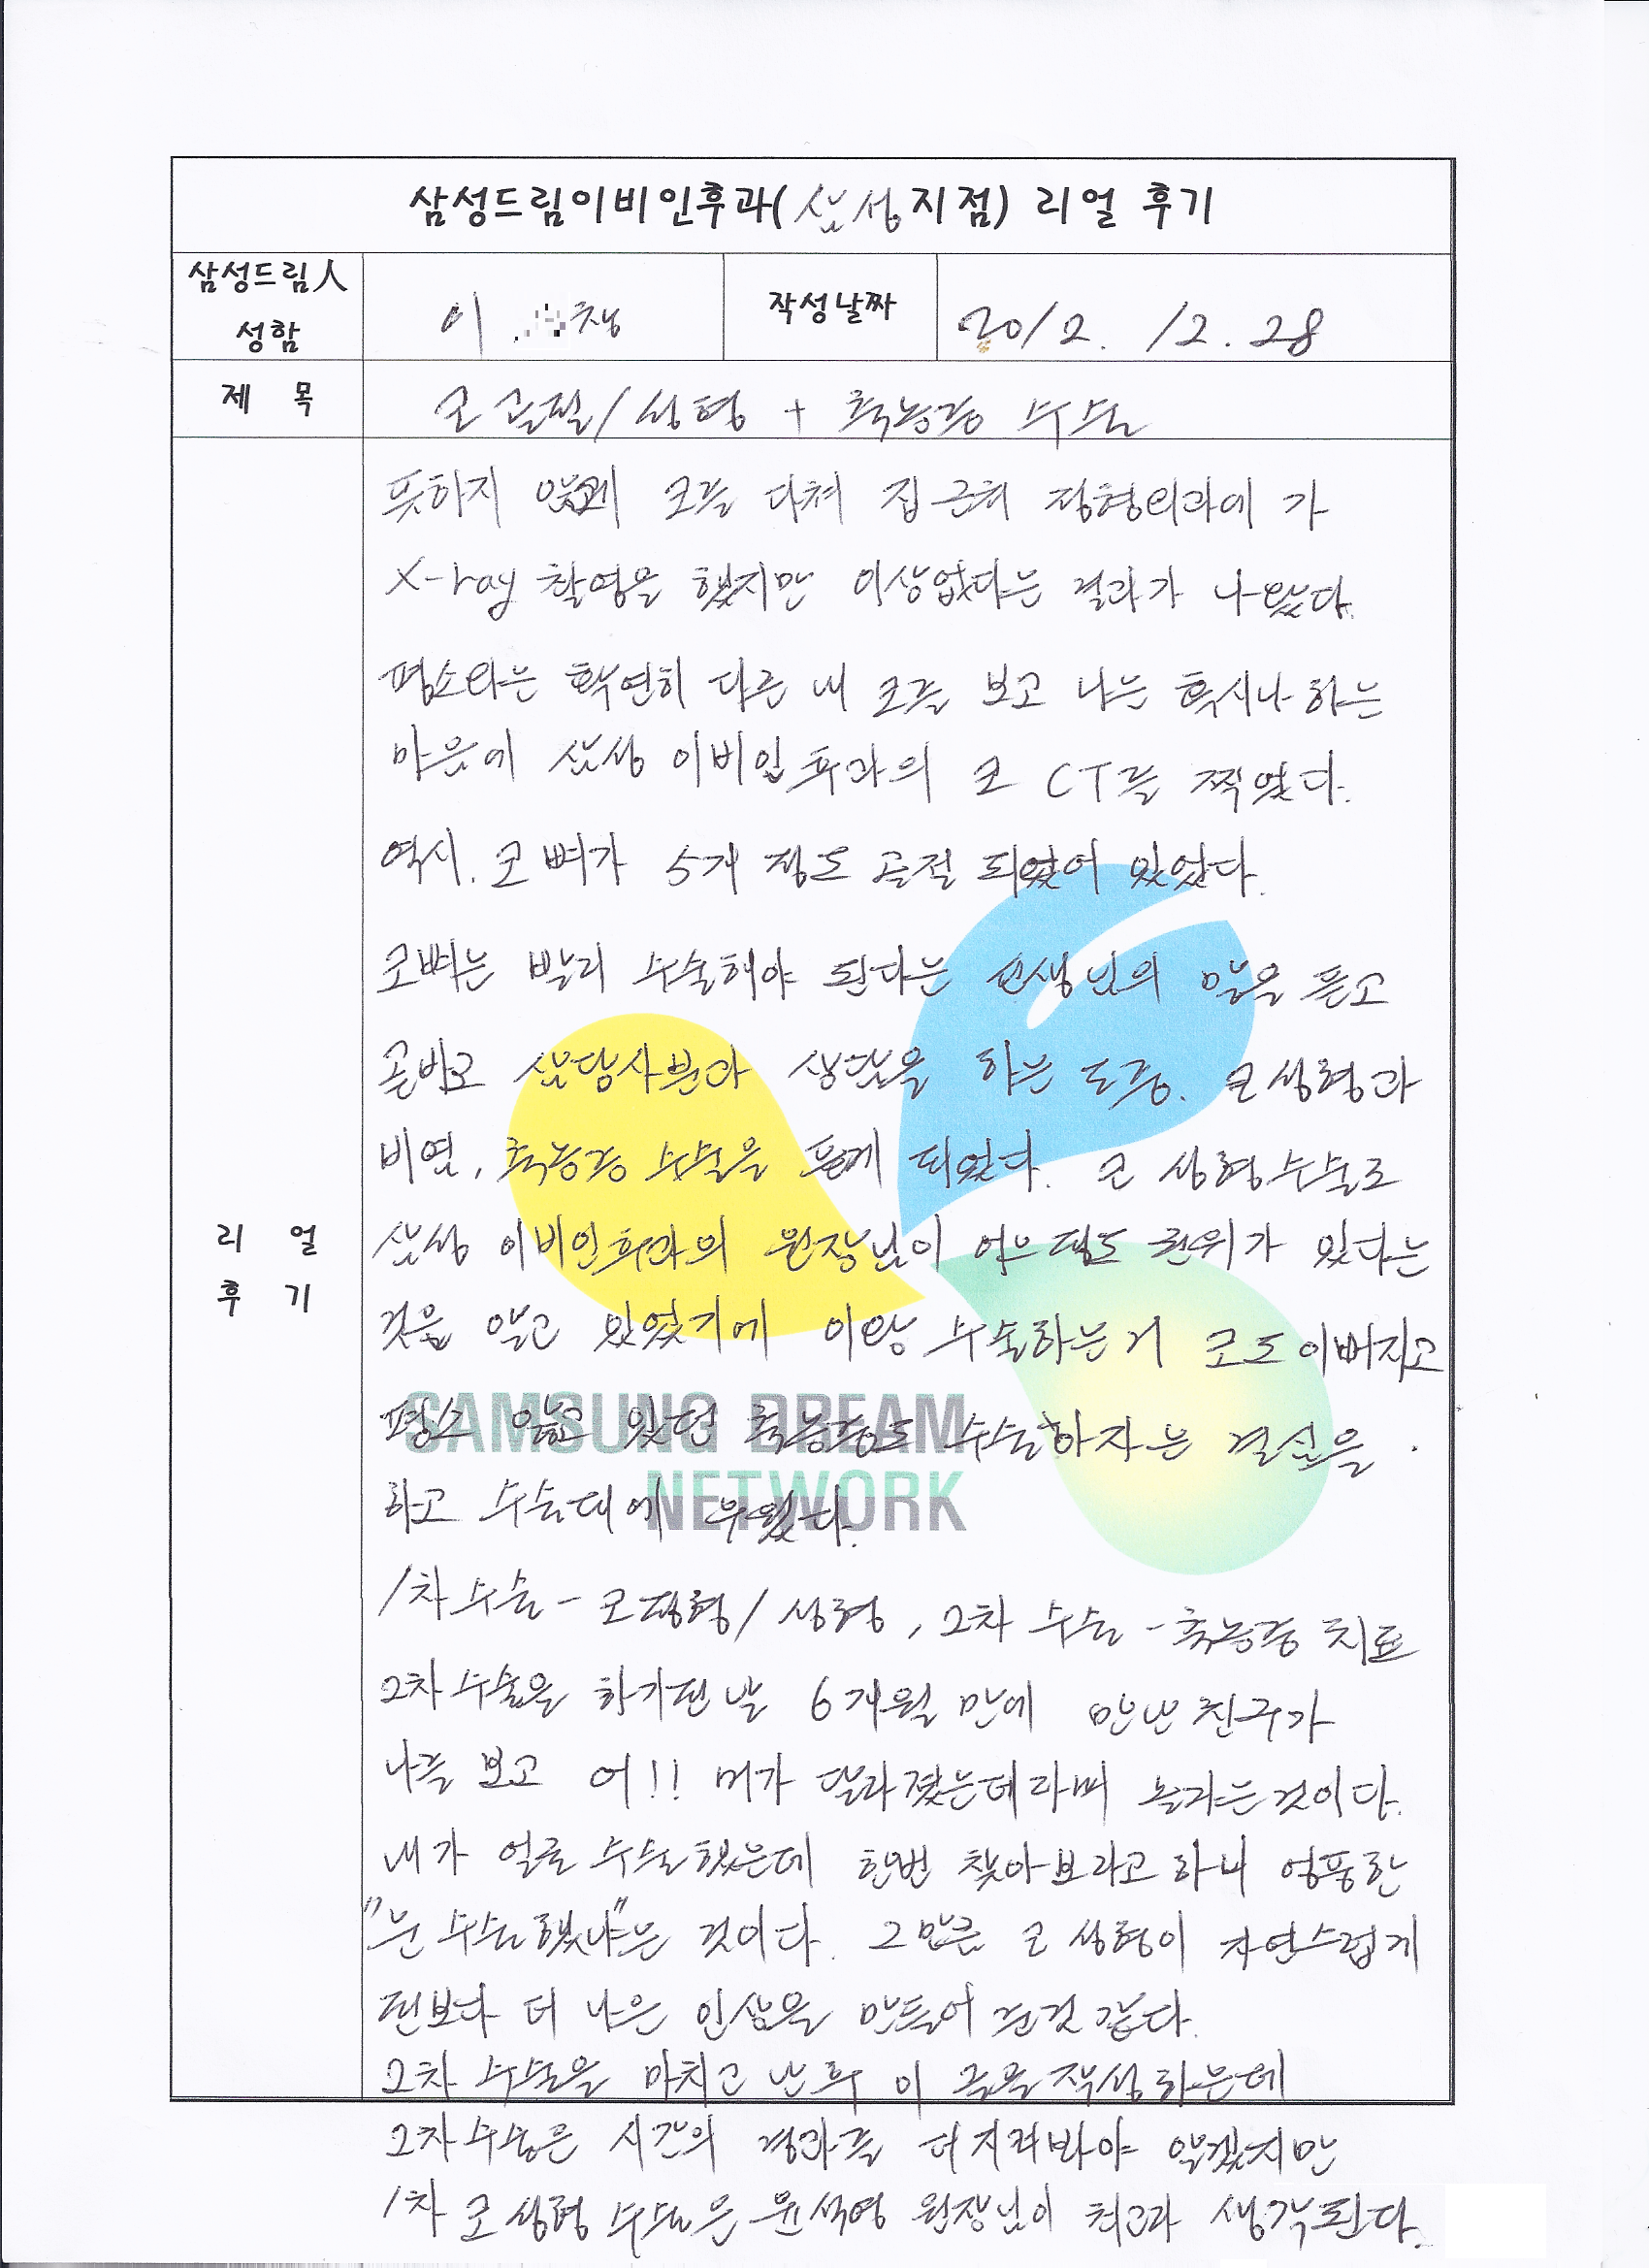 삼성드림이비인후과(삼성지점) 리얼 후기
삼성드림人
성함
이 채
작성날짜
2012. 12. 28
제 목
코골절/성형 + 축농증 수술
뜻하지 않게 코를 다쳐 집 근처 정형외과에 가
X-ray 촬영을 했지만 이상없다는 결과가 나왔다.
평소와는 확연히 다른 내 코를 보고 나는 혹시나 하는
마음에 삼성 이비인후과의 코 CT를 찍었다.
역시. 코뼈가 5개 정도 골절 되었어 있었다.
코뼈는 빨리 수술해야 된다는 선생님의 말을 듣고
곧바로 상담사분과 상담을 하는 도중. 코성형과
비염, 축농증 수술을 듣게 되었다. 코 성형수술로
삼성 이비인후과의 원장님이 어느정도 권위가 있다는
것을 알고 있었기에 이왕 수술하는거 코도 이뻐지고
평소 앓고 있던 축농증도 수술하자는 결심을
하고 수술대에 누웠다.
1차수술 - 코정형/성형, 2차 수술 - 축농증 치료
2차수술을 하기전날 6개월 만에 만난 친구가
나를 보고 어!! 머가 달라졌는데라며 놀라는것이다.
내가 얼굴 수술했는데 한번 찾아보라고 하니 엉뚱한
"눈 수술했냐"는 것이다. 그만큼 코 성형이 자연스럽게
전보다 더 나은 인상을 만들어 준것 같다.
2차 수술을 마치고 난후 이 글을 작성하는데
2차수술은 시간의 경과를 더 지켜봐야 알겠지만
1차 코 성형 수술은 윤석영 원장님이 최고라 생각된다.
리 얼
후 기
SAMSUNG DREAM
NETWORK